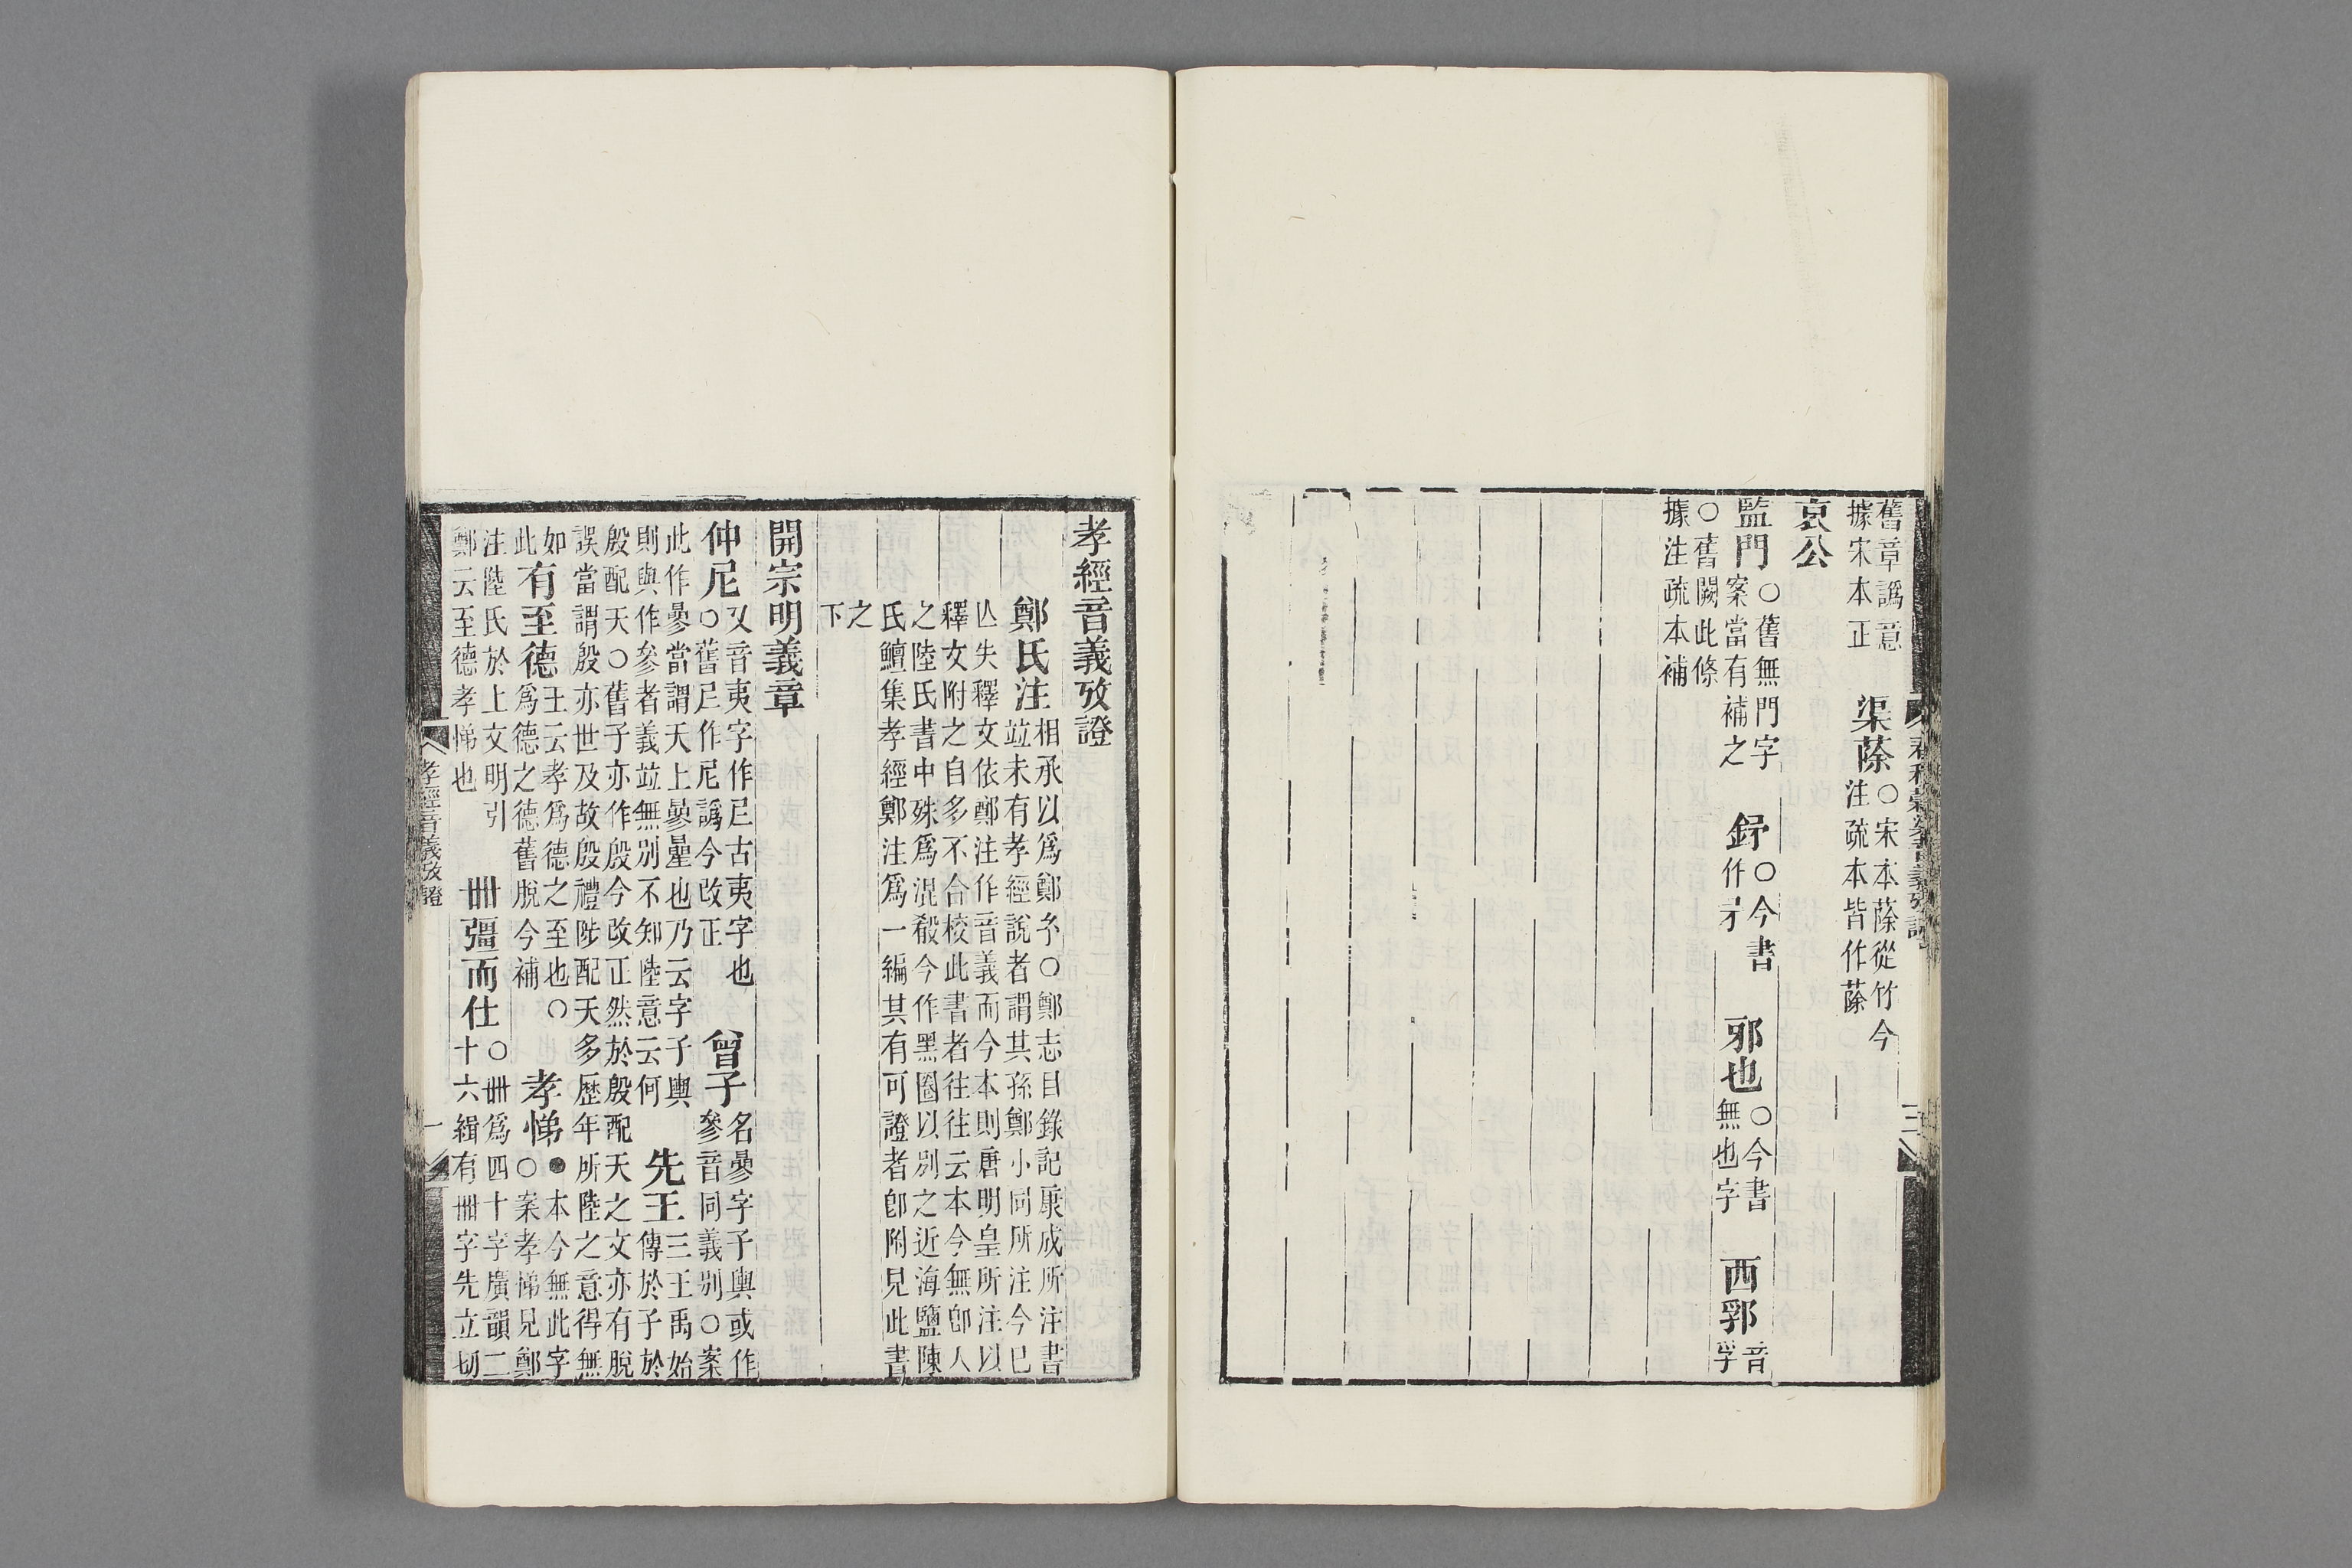 舊章譌意
據宋本正
渠蒢
○宋本蒢從竹今
注疏本皆作蒢
哀公
監門
○舊無門字
案當有補之
鋝
○今書
作矛
邪也
○今書
無也字
西郛
音
孚
○舊闕此條
據注疏本補
三
孝經音義攷證
鄭氏注
相承以爲鄭𤣥○鄭志目錄記康成所注書
竝未有孝經說者謂其孫鄭小同所注今已
亾失釋文依鄭注作音義而今本則唐明皇所注以
釋文附之自多不合校此書者往往云本今無卽人
之陸氏書中殊爲混殽今作黑圈以別之近海鹽陳
氏鱣集孝經鄭注爲一編其有可證者卽附見此書
之
下
開宗明義章
仲尼
又音夷字作𡰥古夷字也
○舊𡰥作尼譌今改正
曾子
名曑字子輿或作
參音同義別○案
此作曑當謂天上曑星也乃云字子輿
則與作參者義竝無別不知陸意云何
先王
三王禹始
傳於子於
殷配天○舊子亦作殷今改正然於殷配天之文亦有脫
誤當謂殷亦世及故殷禮陟配天多歷年所陸之意得無
如
此
有至德
王云孝爲德之至也○
爲德之德舊脫今補
孝悌
●本今無此字
○案孝悌見鄭
注陸氏於上文明引
鄭云至德孝悌也
卌彊而仕
○卌爲四十字廣韻二
十六緝有卌字先立切
孝經音義攷證
一